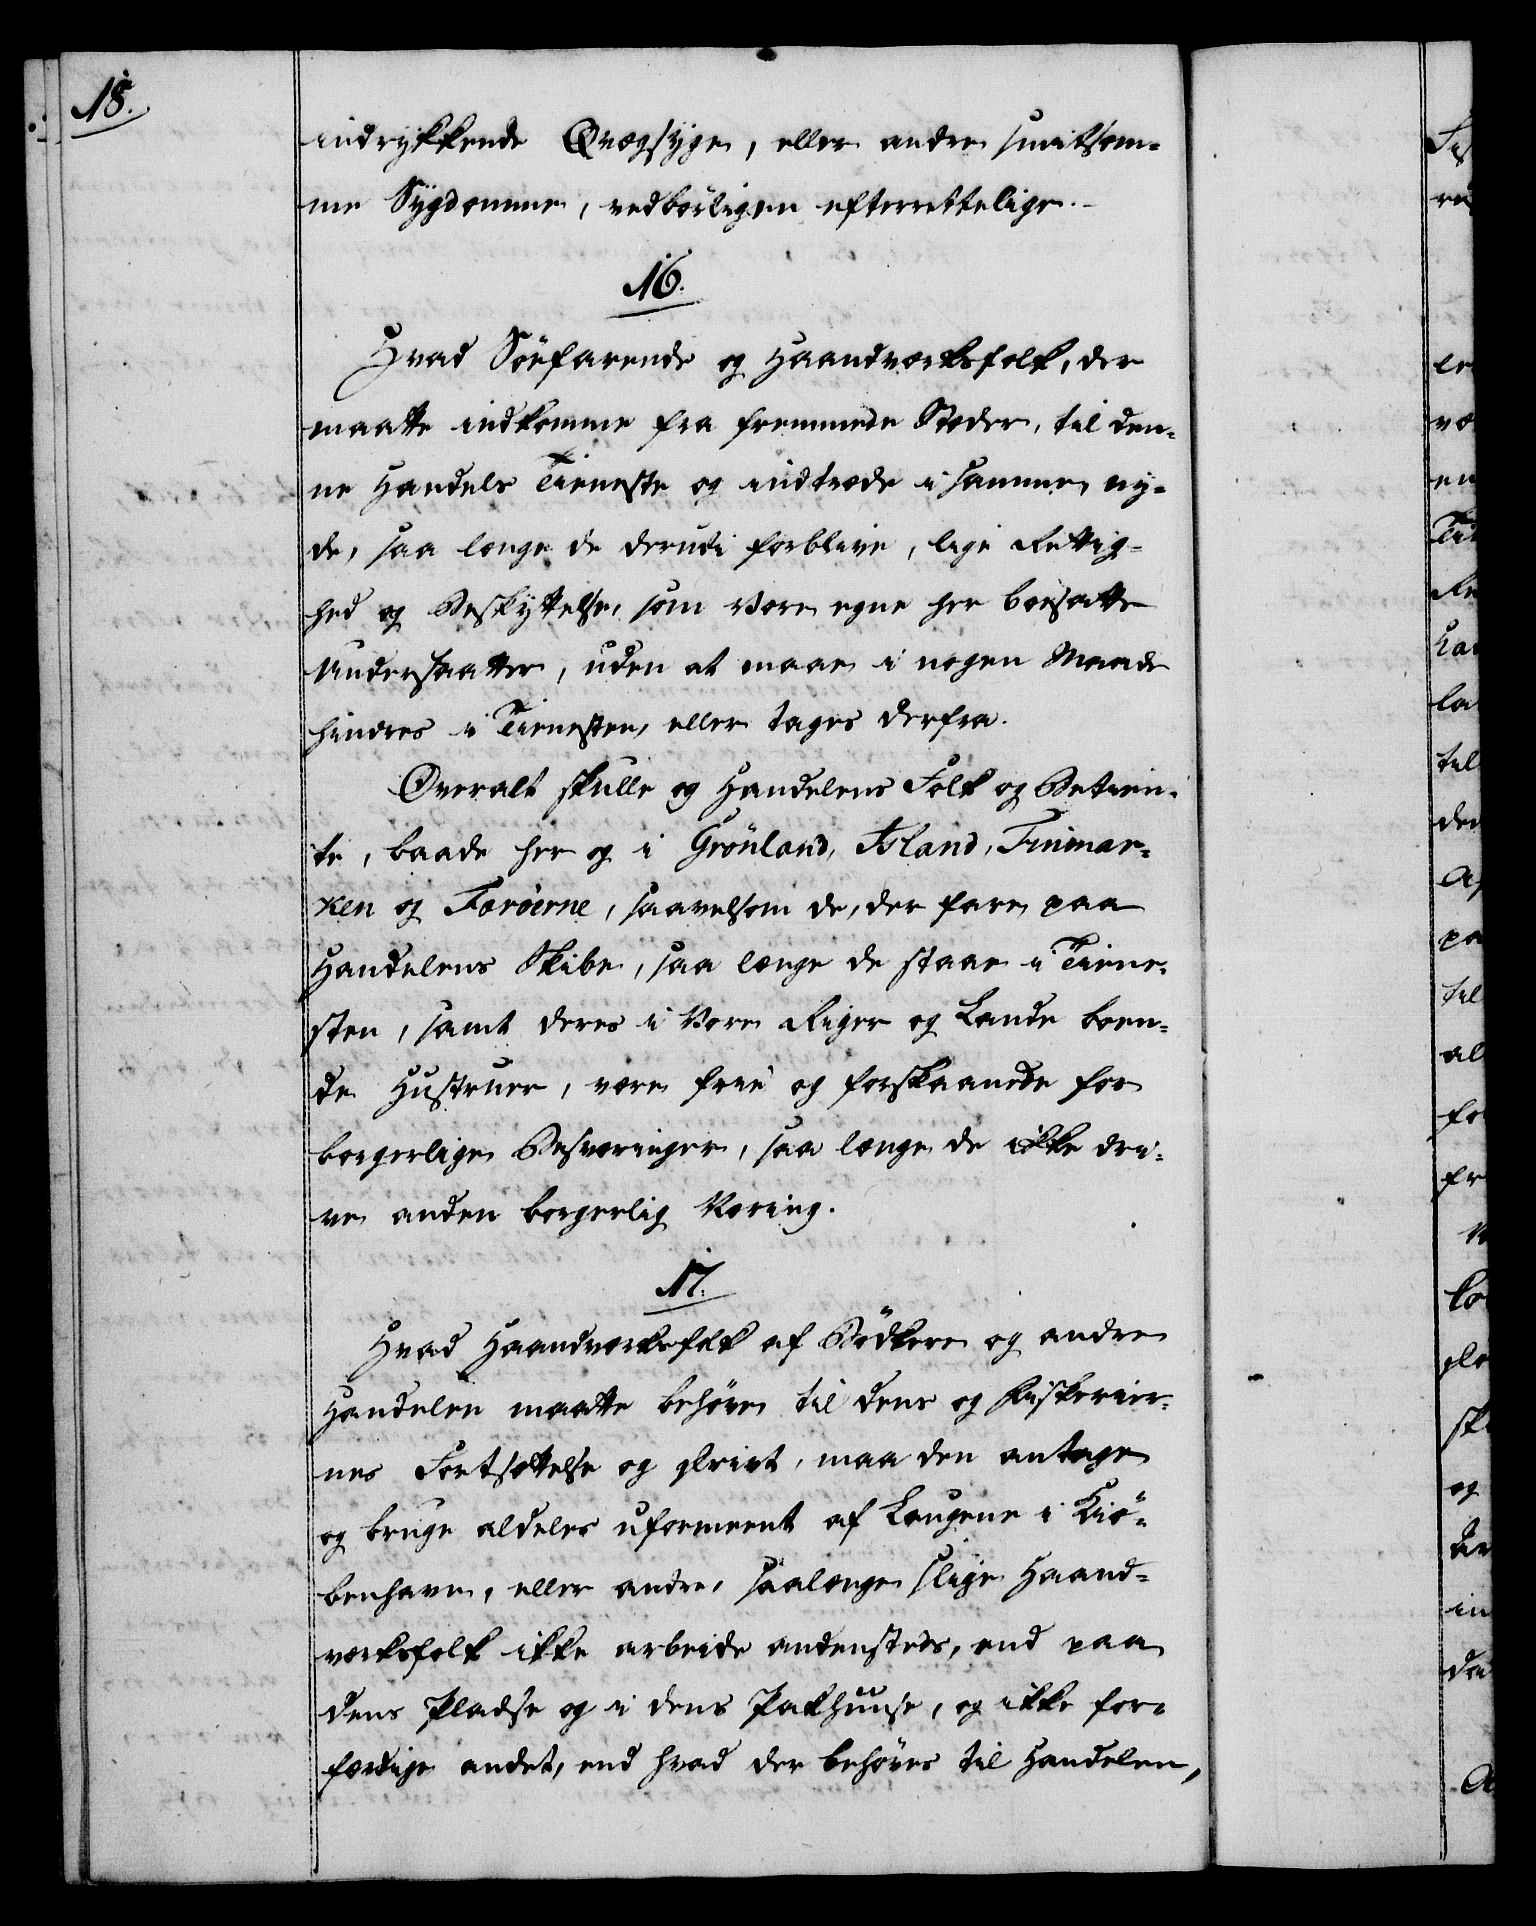 18.
indrykkende Qvægsyge, eller andre smitsom-
me Sygdomme, vedbörligen efterrettelige.
16.
Hvad Söefarende og Haandværksfolk, der
maatte indkomme fra fremmede Stæder, til den-
ne Handels Tieneste og indtræde i samme, ny-
de, saa længe de derudi forblive, lige Rettig-
hed og Beskyttelse, som Vore egne her boesatte
Undersaatter, uden at maae i nogen Maade
hindres i Tienesten, eller tages derfra.
Overalt skulle og Handelens Folk og Betien-
te, baade her og i Grönland, Island, Finmar-
ken og Færöerne, saavelsom de, der fare paa
Handelens Skibe, saa længe de staae i Tiene-
sten, samt deres i Vore Riger og Lande boen-
de Hustruer, være frie og forskaanede for
borgerlige Besværinger, saa længe de ikke dri-
ve anden borgerlig Næring.
17.
Hvad Haandværksfolk af Bödkere og andre
Handelen maatte behöve til dens og Fiskerier-
nes Fortsættelse og Drivt, maa den antage
og bruge aldeles uformeent af Laugene i Kiö-
benhavn, eller andre, saalænge slige Haand-
værksfolk ikke arbeide andensteds, end paa
dens Pladse og i dens Pakhuuse, og ikke for-
færdige andet, end hvad der behöves til Handelen,